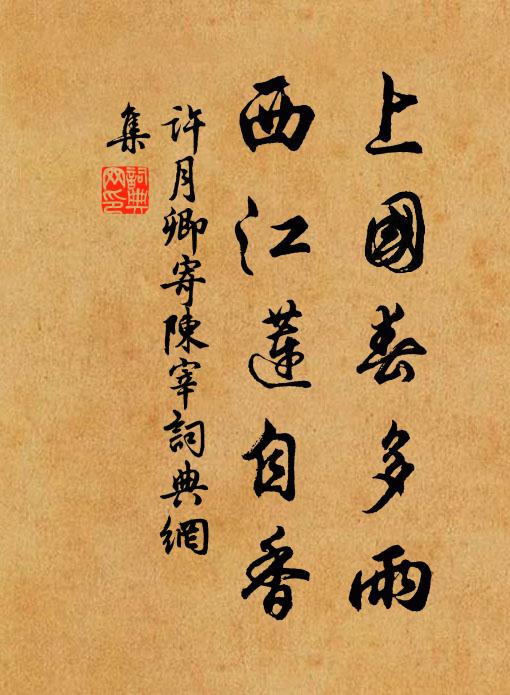 上國春多雨
西江蓮自香
許月卿寄陳宰詞典網
集
詞典
网印